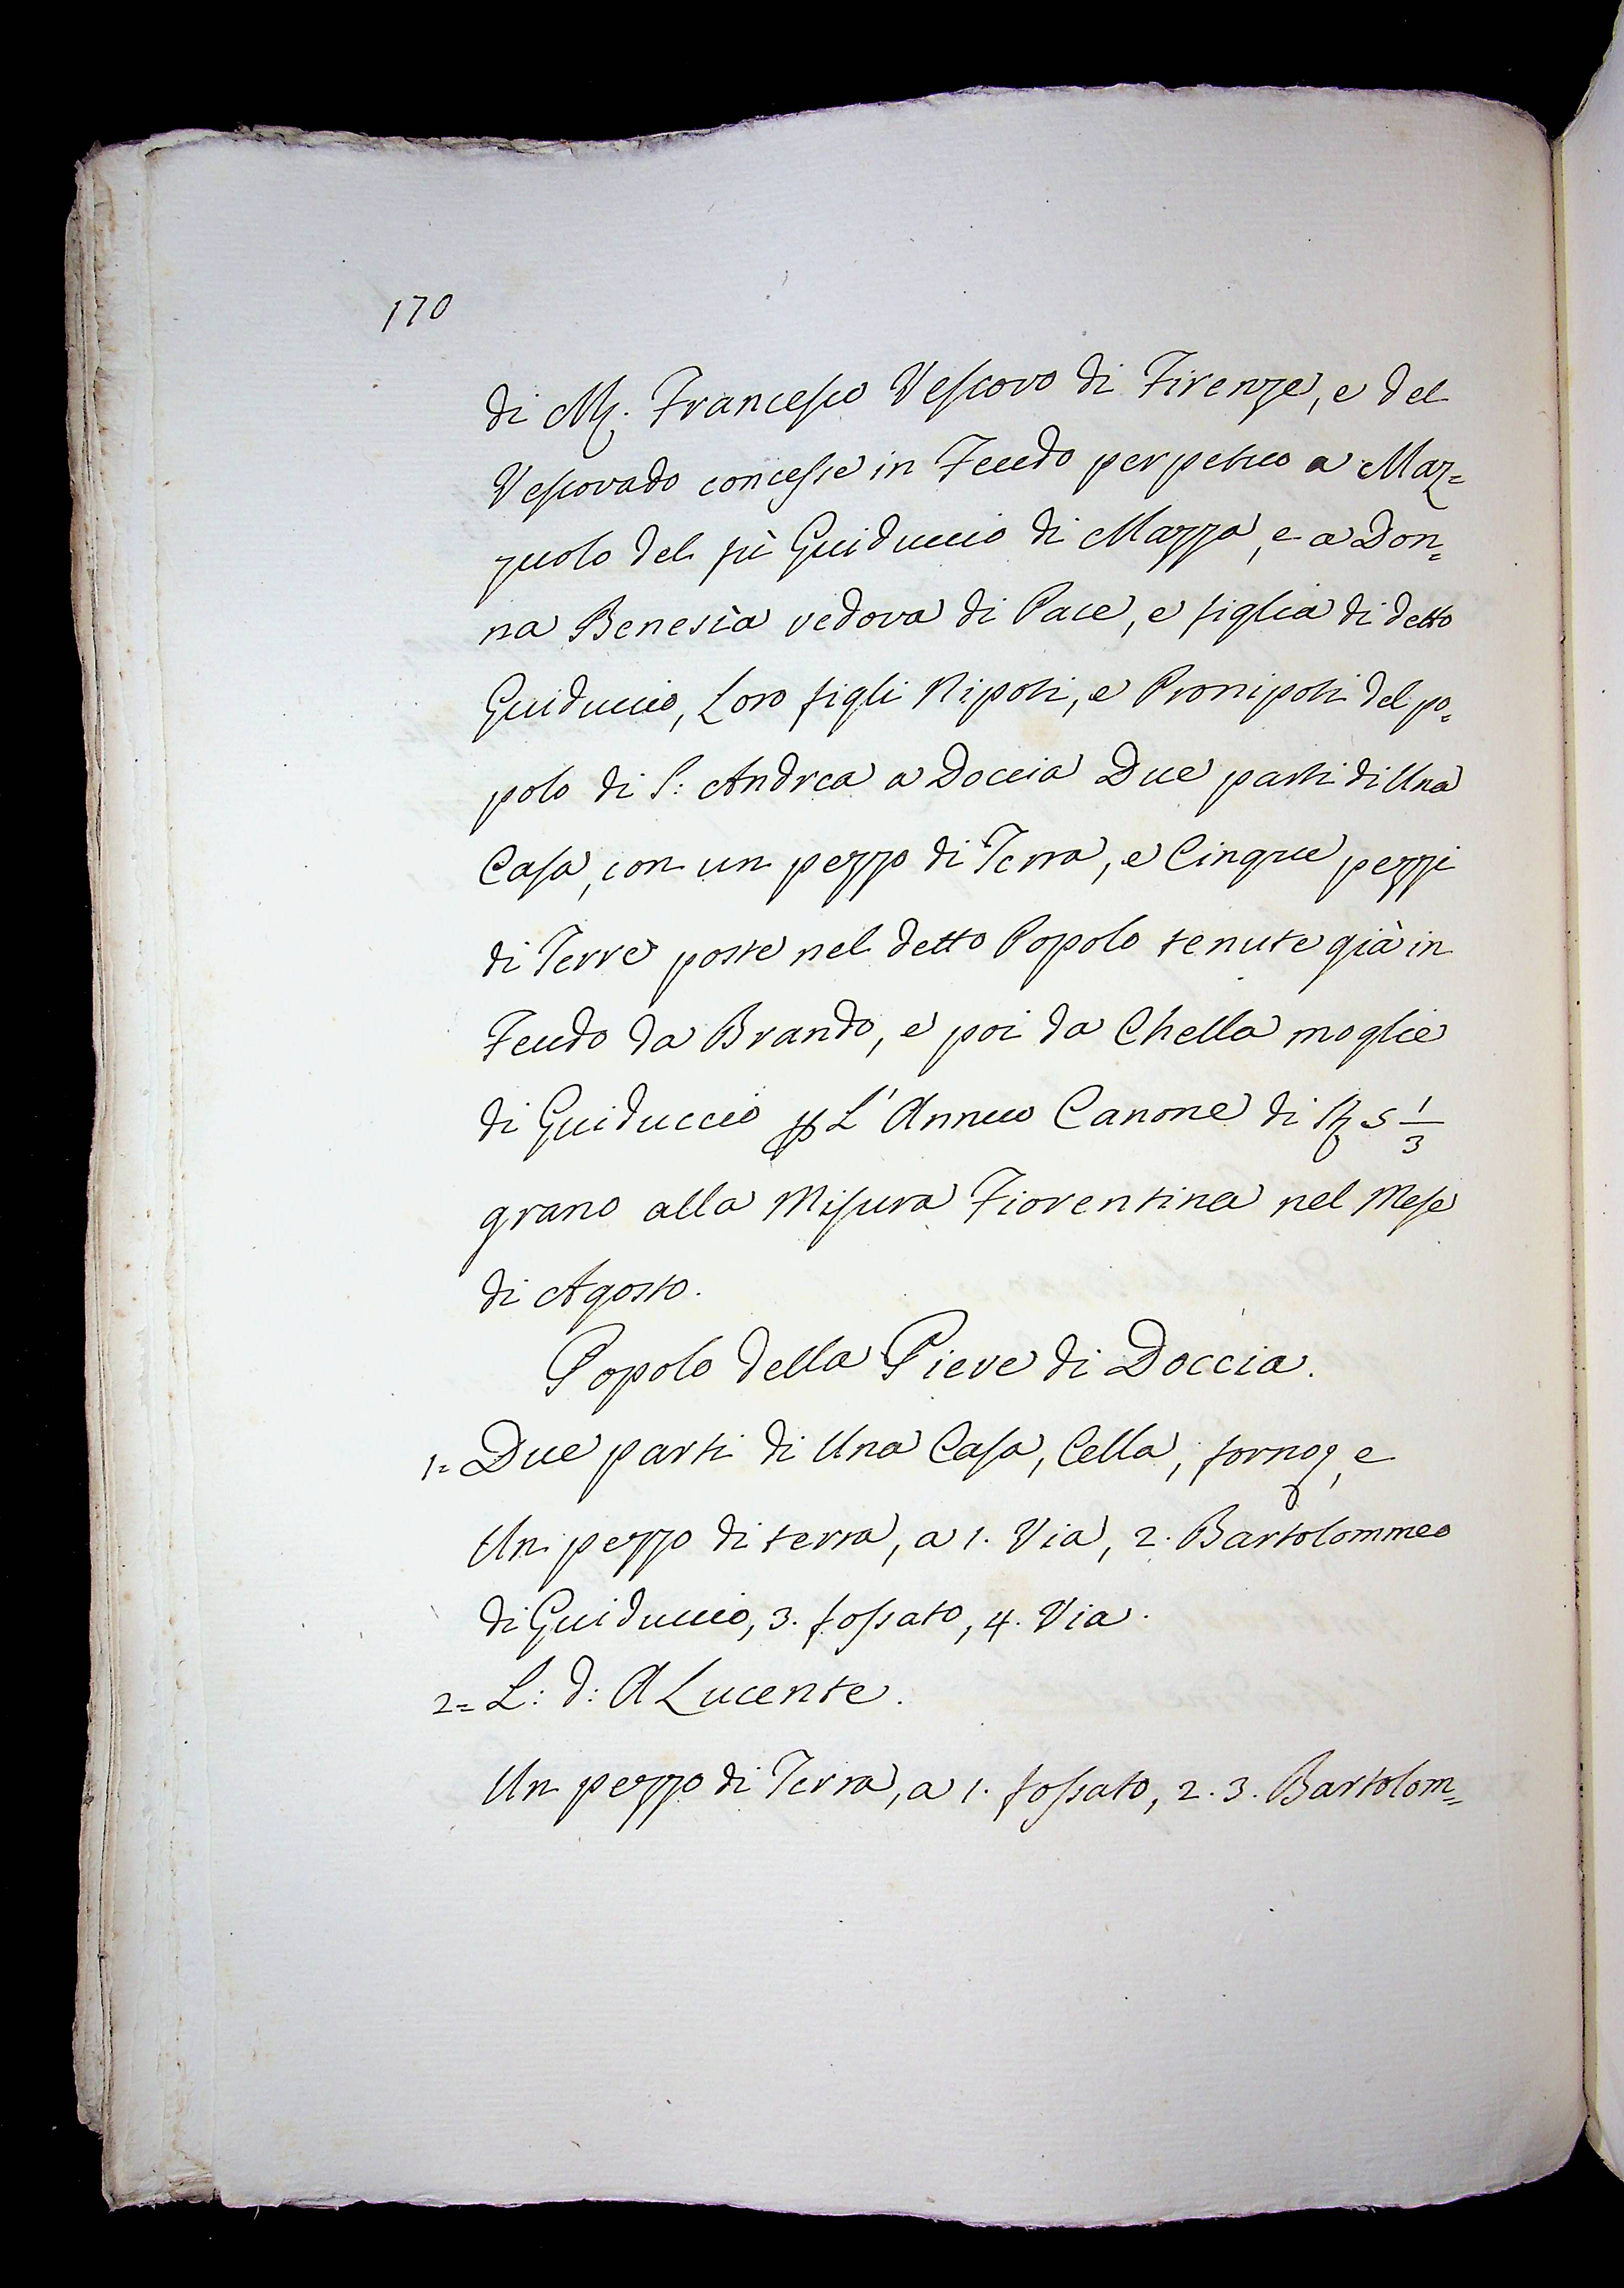 170
di M. Francesco Vescovo di Firenze, e del
Vescovado concesse in Feudo perpetuo a Maz=
zuolo del fù Guiduccio di Mazza, e a Don=
na Benesia vedova di Pace, e figlia di detto
Guiduccio, Loro figli Nipoti, e Pronipoti del po=
polo di S: Andrea a Doccia Due parti di Una
Casa, con un pezzo di Terra, e Cinque pezzi
di Terre poste nel detto Popolo tenute già in
Feudo da Brando, e poi da Chella moglie
di Guiduccio p L'Annuo Canone di 5 1/3
grano alla Misura Fiorentina nel Mese
di Agosto.
Popolo della Pieve di Doccia.
1= Due parti di Una Casa, Cella, forno, e
Un pezzo di terra, a 1. Via, 2. Bartolommeo
di Guiduccio, 3. fossato, 4. Via.
2= L: d: A Lucente.
Un pezzo di Terra, a 1. fossato, 2. 3. Bartolom=